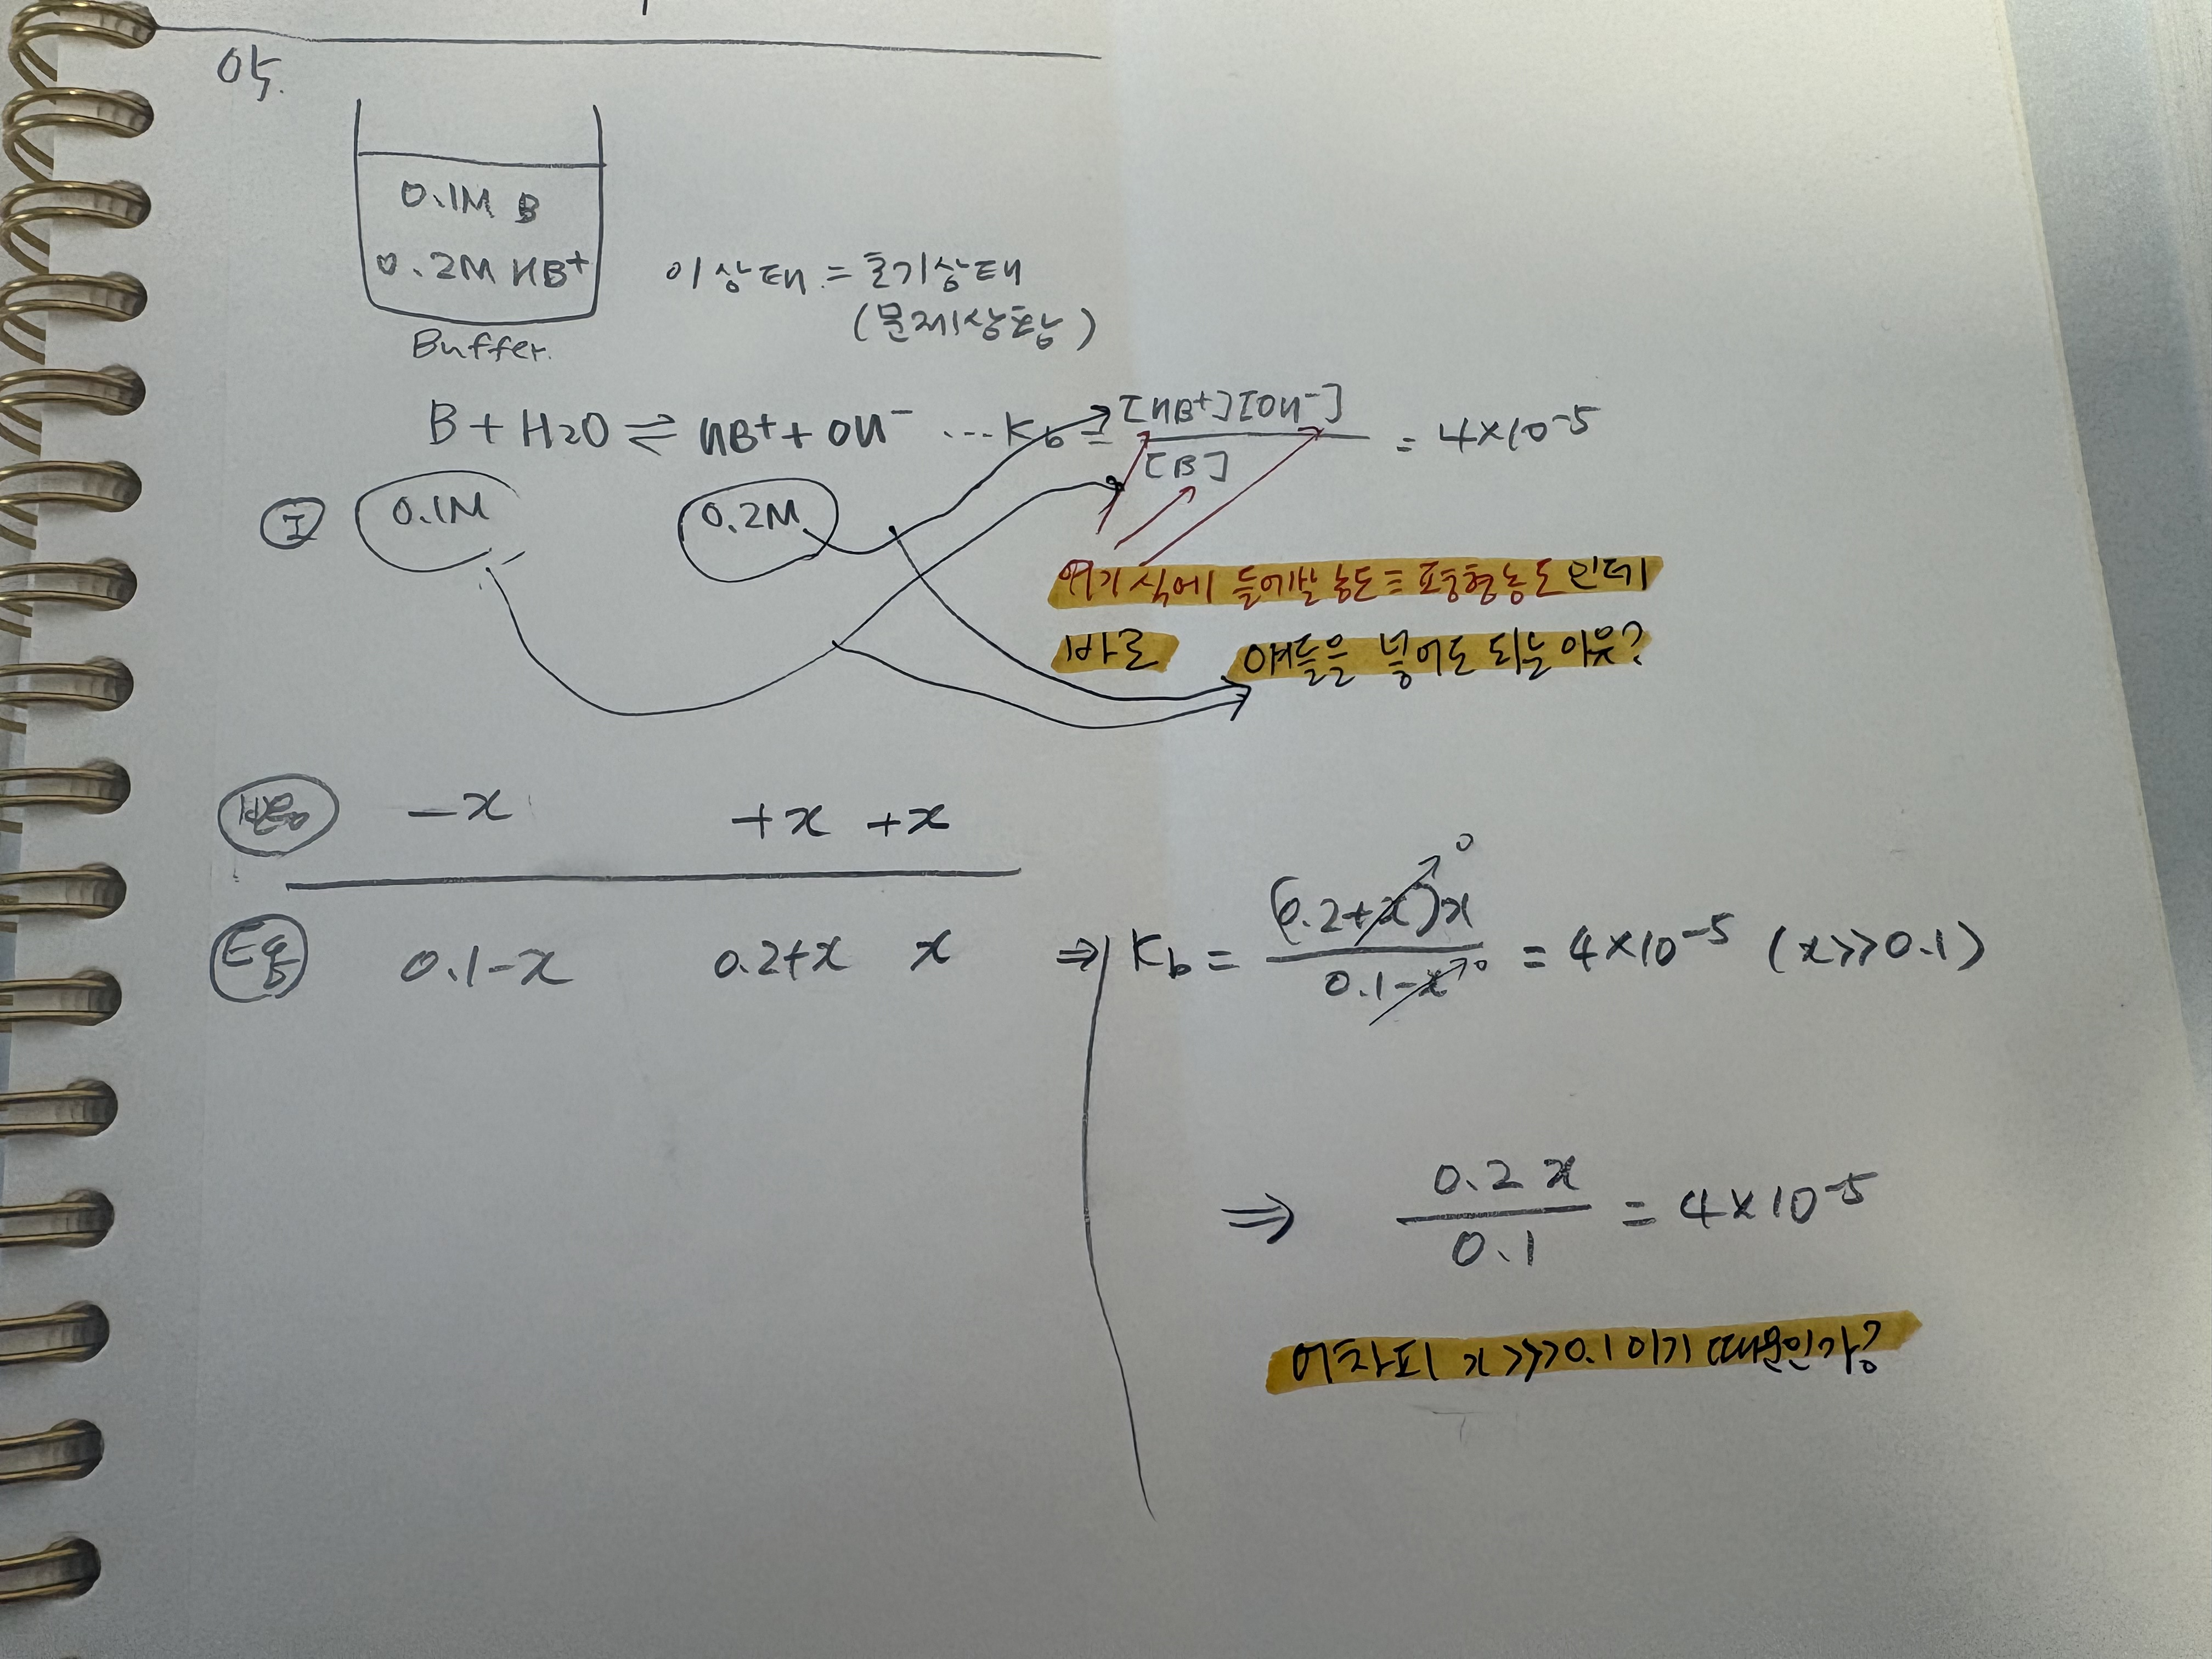 0.1M B
0.2M HB+
Buffer.
이상태 = 초기상태
(문제상황)
B + H2O ⇌ HB+ + OH- ... Kb = [HB+][OH-] / [B] = 4×10^-5
I 0.1M 0.2M
여기식에 들어갈 농도 = 평형농도 인데
바로 얘들을 넣어도 되는 이유?
-x +x +x
Eq 0.1-x 0.2+x x ⇒ Kb = (0.2+x)x / 0.1-x = 4×10^-5 (x>>0.1)
0 0
⇒ 0.2x / 0.1 = 4×10^-5
어차피 x>>>0.1이기 때문인가?